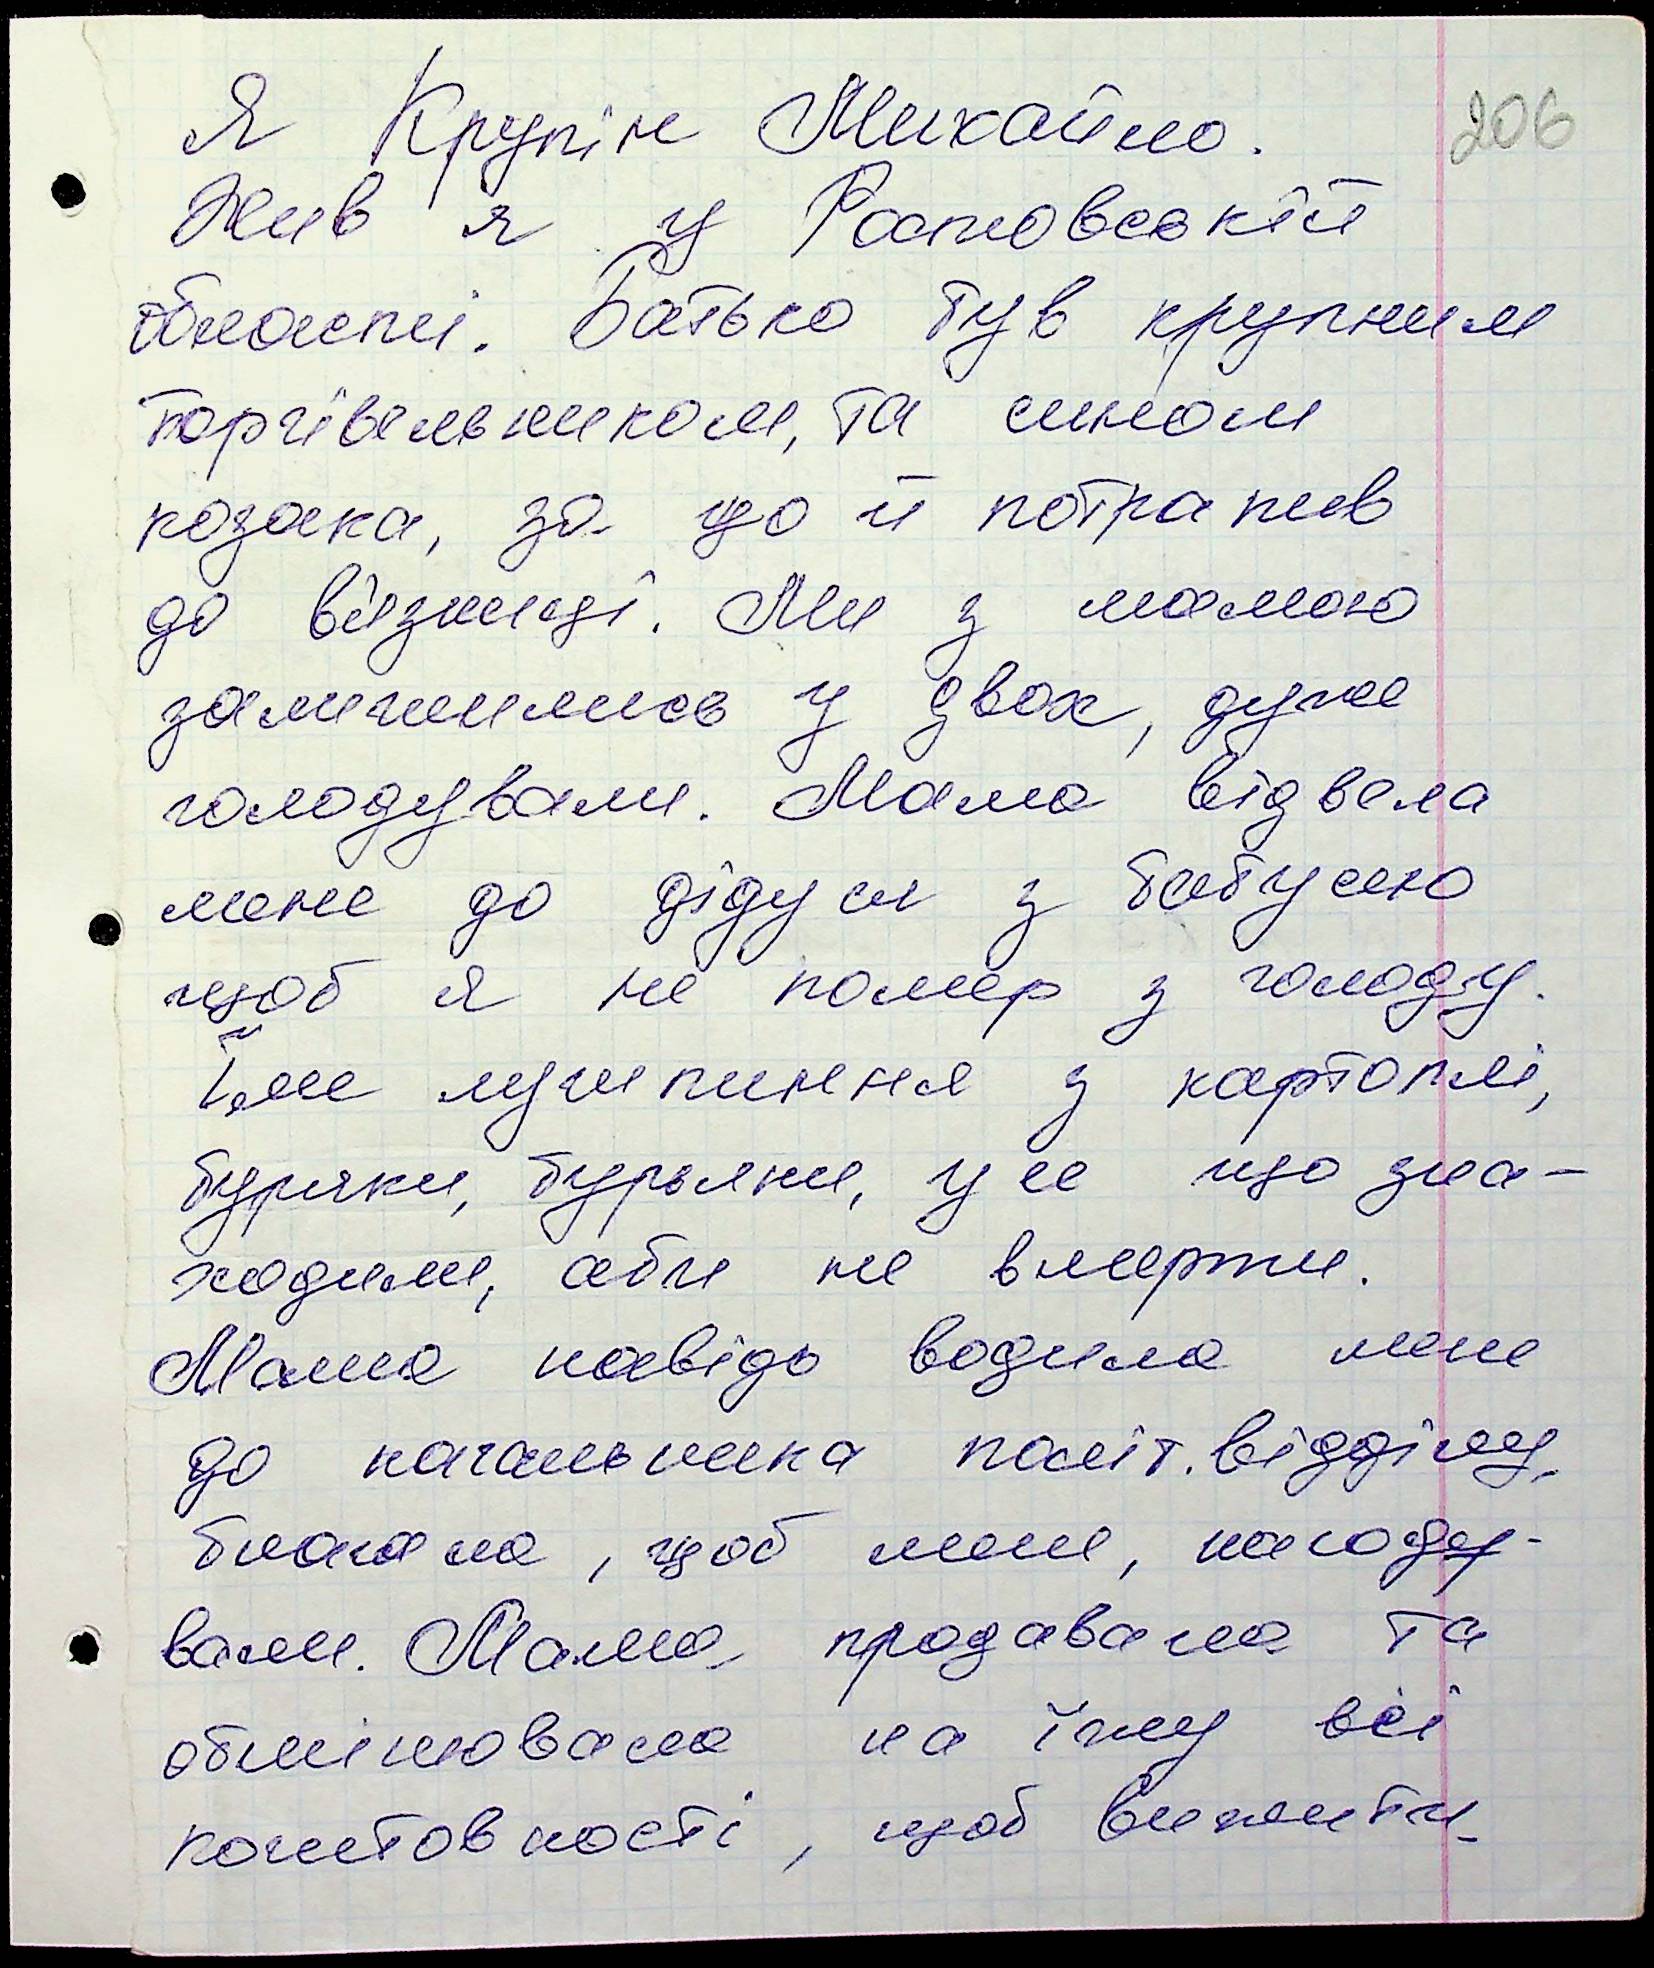 Я Крупін Михайло. 206
Жив я у Ростовській
області. Батько був крупним
торгівельником, та сином
козака, за що й потрапив
до вязниці. Ми з мамою
залишились у двох, дуже
голодували. Мама відвела
мене до дідуся з бабусею
щоб я не помер з голоду.
Їли лушпиння з картоплі,
буряки, бурьяни, усе що зна-
ходили, аби не вмерти.
Мама навідь водила мене
до начальника політ. відділу,
благала, щоб мене, нагоду-
вали. Мама продавала та
обмінювала на їжу всі
коштовності, щоб вижити.